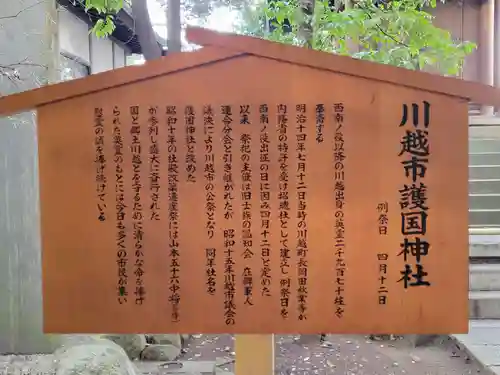 川越市護国神社
例祭日　四月十二日
西南ノ役以降の川越出身の英霊二千九百七十柱を
奉斎する
明治十四年七月十二日当時の川越町長岡田秋業等が
内務省の特許を受け招魂社として建立し 例祭日を
西南ノ役出征の日に因み四月十二日と定めた
以来 祭祀の主催は旧士族の温知会 在郷軍人
連合分会と引き継がれたが 昭和十五年川越市議会の
議決により川越市の公祭となり 同年社名を
護国神社と改めた
昭和十年の社殿改築遷座祭には山本五十六中将
が参列し盛大に斎行された
国と郷土川越とを守るために清らかな命を捧げ
られた英霊のもとには今日も多くの市民が集い
慰霊の誠を捧げ続けている